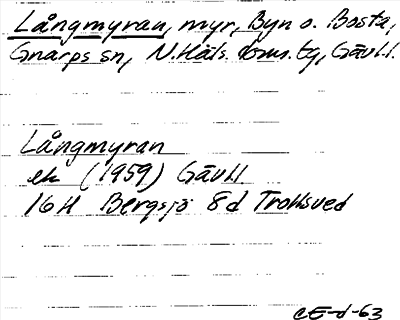 Långmyran, myr, Byn o. Bosta,
Gnarps sn, N. Häls. doms. tg, Gävl.l.
Långmyran
ek (1959) Gävl.l.
16H Bergsjö 8d Trollsved
CE-d-63